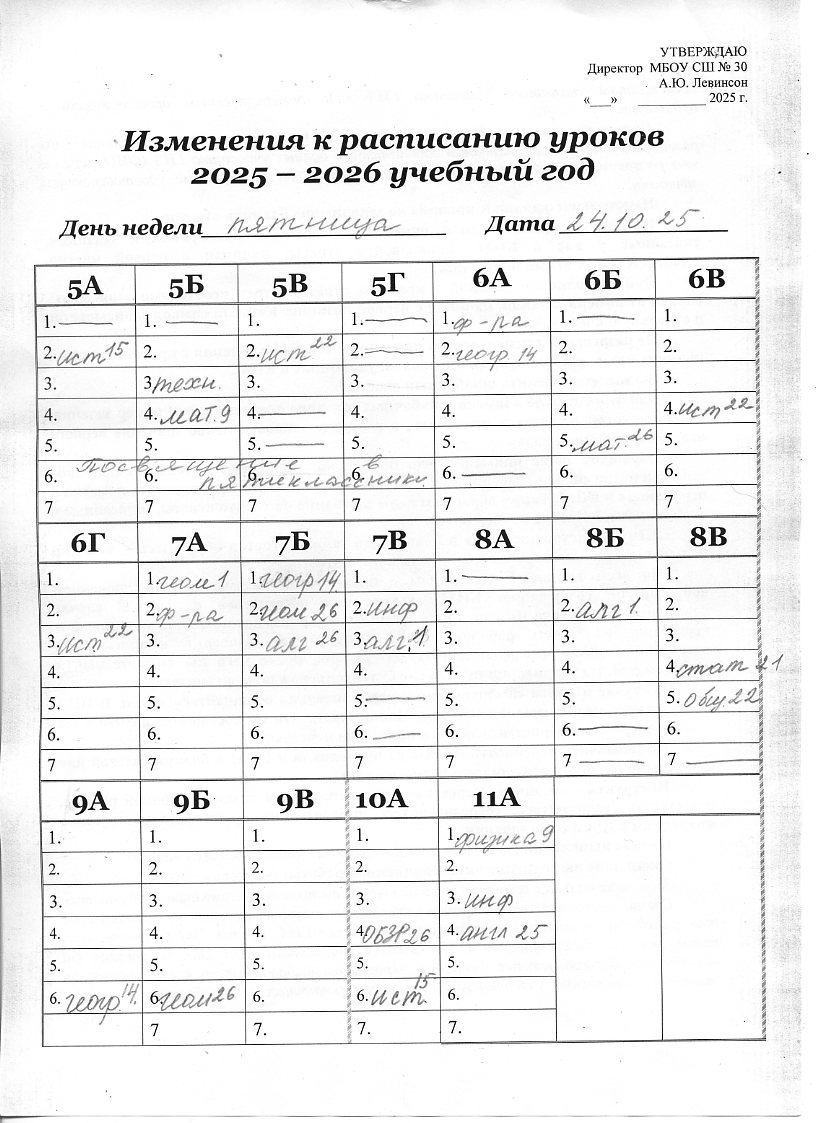 УТВЕРЖДАЮ
Директор МБОУ СШ № 30
А.Ю. Левинсон
«___» __________ 2025 г.
Изменения к расписанию уроков
2025 – 2026 учебный год
День недели пятница Дата 24.10.25
5А 5Б 5В 5Г 6А 6Б 6В
1. — 1. — 1. 1. — 1. ф-ра 1. — 1.
2. ист 15 2. 2. ист 22 2. — 2. геогр. 14 2. 2.
3. 3. техн. 3. 3. 3. 3. 3.
4. 4. мат. 9 4. — 4. 4. 4. 4. ист 22
5. 5. 5. — 5. 5. 5. мат. 26 5.
6. 6. 6. 6. 6. — 6. 6.
Посвящение в
пятиклассники.
7 7 7 7 7 7 7
6Г 7А 7Б 7В 8А 8Б 8В
1. 1. геом 1 1. геогр 14. 1. 1. — 1. 1.
2. 2. ф-ра 2. геом 26 2. инф 2. 2. алг 1. 2.
3. ист 22 3. 3. алг 26 3. алг. 1 3. 3. 3.
4. 4. 4. 4. 4. 4. 4. стат 21
5. 5. 5. 5. — 5. 5. 5. общ. 22
6. 6. 6. 6. — 6. 6. — 6.
7 7 7 7 7 7 — 7 —
9А 9Б 9В 10А 11А
1. 1. 1. 1. 1. физика 9
2. 2. 2. 2. 2.
3. 3. 3. 3. 3. инф
4. 4. 4. 4. ОБЗР 26 4. англ 25
5. 5. 5. 5. 5.
6. геогр. 14. 6. геом 26 6. 6. ист. 15 6.
7 7. 7. 7.